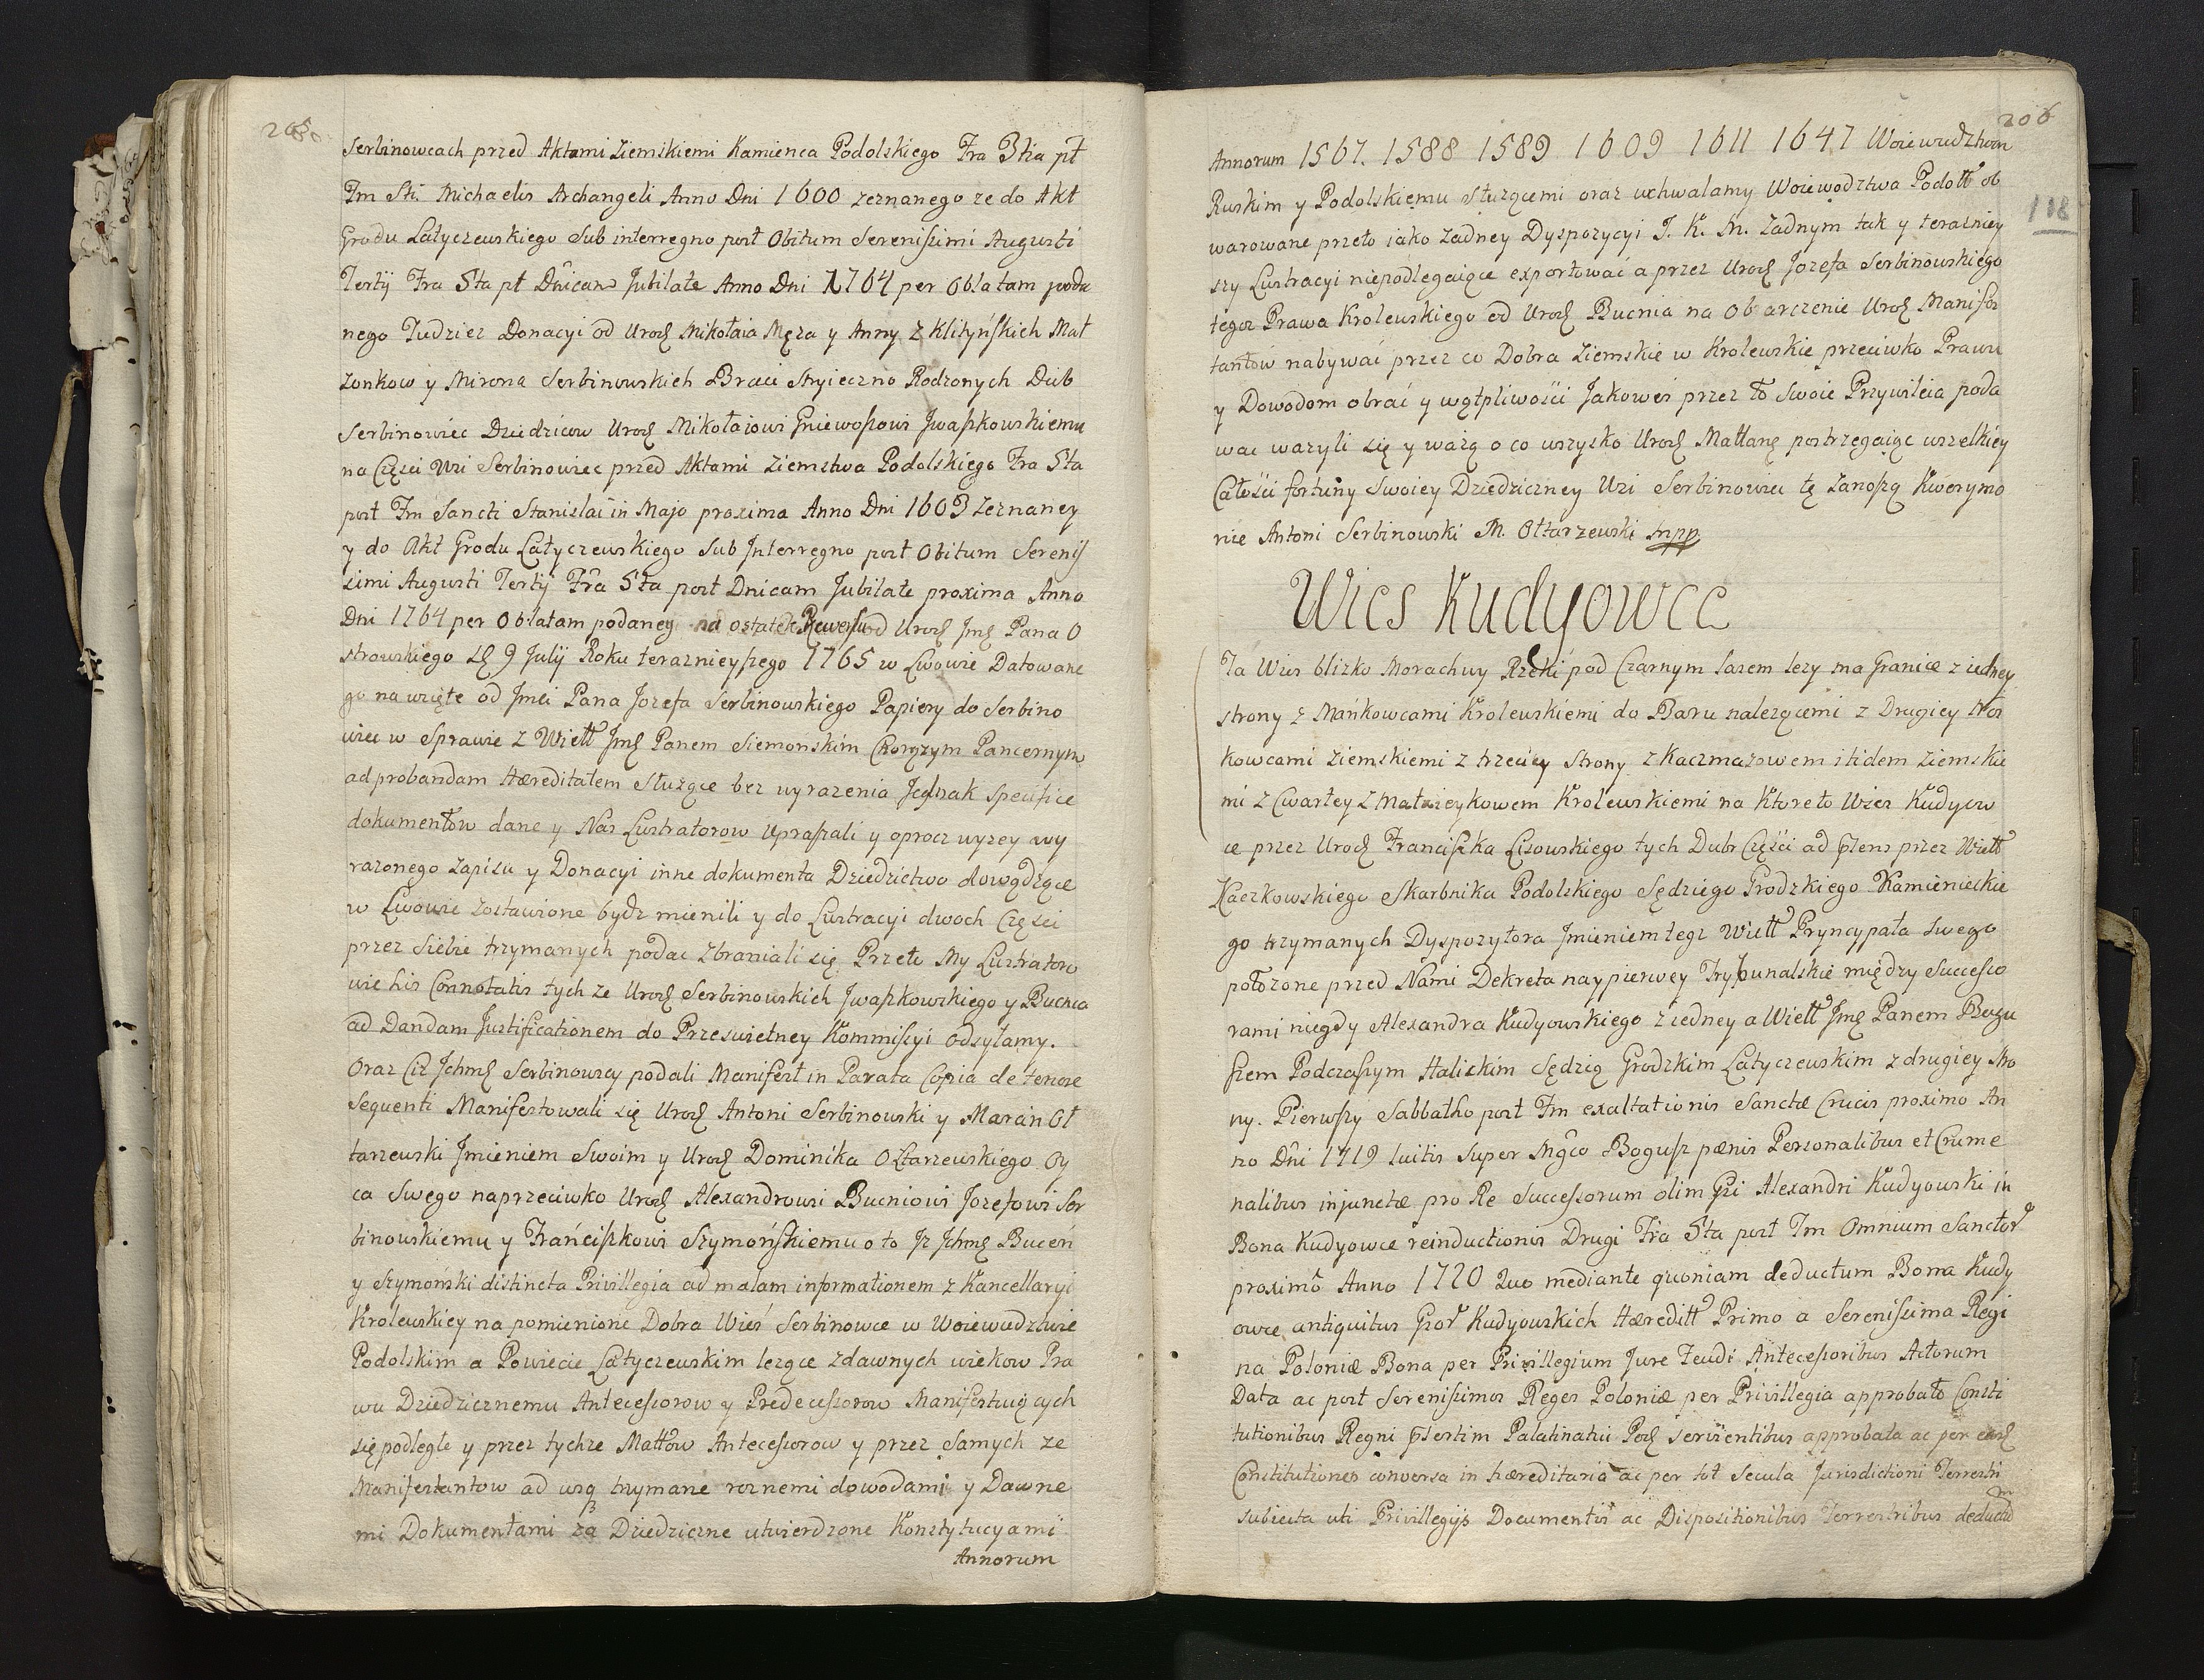 205
Serbinowcach przed Aktami Ziemskiemi Kamienca Podolskiego Fra 3tia pt
Fm Sti. Michaelis Archangeli Anno Dni 1600 zeznanego ze do Akt
Grodu Latyczewskiego Sub interregno post Obitum Serenissimi Augusti
Tertij Fra 5ta pt Dnicam Jubilate Anno Dni 1764 per Oblatam poda
nego Tudziez Donacyi od Urod Mikołaia Męza y Anny z Klityńskich Mał
zonkow y Mirona Serbinowskich Braci Stryieczno Rodzonych Dub
Serbinowiec Dziedzicow Urod Mikołaiowi Gniewoszowi Jwaszkowskiemu
na Części Wsi Serbinowiec przed Aktami Ziemstwa Podolskiego Fra 5ta
post Fm Sancti Stanislai in Majo proxima Anno Dni 1603 Zeznaney
y do Akt Grodu Latyczewskiego Sub Jnterregno post Obitum Serenis
simi Augusti Tertij Fra 5ta post Dnicam Jubilate proxima Anno
Dni 1764 per Oblatam podaney na ostatek Rewersu od Urod Jmć Pana O
strowskiego 9 Julij Roku terazniey szego 1765 w Lwowie Datowane
go na wzięte od Jmci Pana Jozefa Serbinowskiego Papiery do Serbino
wiec w Sprawie z Wielt Jmć Panem Siemonskim Chorązym Pancernym
ad probandam Hæreditatem słuzące bez wyrazenia Jednak specifice
dokumentow dane y Nas Lustratorow upraszali y oprocz wyzey wy
razonego Zapisu y Donacyi inne dokumenta Dziedzictwo dowodzące
w Lwowie zostawione bydz mienili y do Lustracyi dwoch Części
przez siebie trzymanych podac zbraniali się Przeto My Lustratoro
wie his Connotatis tych ze Urod Serbinowskich Jwaszkowskiego y Bucnia
ad Dandam Justificationem do Przeswietney Kommissyi Odsyłamy.
Oraz Ciz Jchmć Serbinowscy podali Manifest in Parata Copia de tenore
Sequenti Manifestowali się Urod Antoni Serbinowski y Marcin Oł
tarzewski Jmieniem Swoim y Urod Dominika Ołtarzewskiego Oy
ca Swego naprzeciwko Urod Alexandrowi Bucniowi Jozefowi Ser
binowskiemu y Frańciszkowi Szymońskiemu o to Jz Jchmć Bucéń
y Szymoński distincta Privillegia ad malam informationem z Kancellaryi
Krolewskiey na pomienione Dobra Wieś Serbinowce w Woiewudztwie
Podolskim a Powiecie Latyczewskim lezące zdawnych wiekow Pra
wu Dziedzicznemu Antecessorow y Predecessorow Manifestuiących
się podległe y przez tychze Mattow Antecessorow y przez samych ze
Manifestantow ad usq trzymane roznemi dowodami y Dawne
mi Dokumentami za Dziedziczne utwierdzone Konstytucyami
Annorum
206
118
Annorum 1567. 1588 1589 1609 1611 1647 Woiewudztwom
Ruskim y Podolskiemu słuzącemi oraz uchwalamy Woiewodztwa Podoll ob
warowane przeto iako zadney Dyspozycyi J. K. M. zadnym tak y terazniey
szy Lustracyi niepodlegaiące exportować a przez Urod Jozefa Serbinowskiego
tegoz Prawa Krolewskiego od Urod Bucnia na Obarczenie Urod Manifes
tantow nabywać przez co Dobra Ziemskie w Krolewskie przeciwko Prawu
y Dowodom obrać y wątpliwości Jakoweś przez to Swoie Przywileia poda
wac wazyli się y wazą o co wszysko Urod Mattanę postrzegaiąc wszelkiey
Całości fortuny Swoiey Dziedziczney Wsi Serbinowiec tę zanoszą Kwerymo
nie Antoni Serbinowski M. Ołtarzewski mpp
Wies Kudyowce
Ta Wies blizko Morachwy Rzeki pod Czarnym Lasem lezy ma Granice z iedney
strony z Mańkowcami Krolewskiemi do Baru nalezącemi z Drugiey Nos
kowcami Ziemskiemi z trzeciey strony z Kaczmazowem itidem Ziemskie
mi z Cwartey z Mateieykowem Krolewskiemi na Ktoreto Wies Kudyow
ce przez Urod Franciszka Lisowskiego tych Dubr Części ad psens przez Wielt
Kaczkowskiego Skarbnika Podolskiego Sędziego Grodzkiego Kamienieckie
go trzymanych Dyspozytora Jmieniem tegz Wielt Pryncypała Swego
połozone przed Nami Dekreta naypierwey Trybunalskie między Successo
rami niegdy Alexandra Kudyowskiego z iedney a Wielt Jmć Panem Bogu
szem Podczaszym Halickim Sędzią Grodzkim Latyczewskim z drugiey stro
ny. Pierwszy Sabbatho post Fm exaltationis Sanctæ Crucis proximo An
no Dni 1719 luitis super Mgco Bogusz pænis Personalibus et Crime
nalibus injunctæ pro Re Successorum olim Gsi Alexandri Kudyowski in
Bona Kudyowce reinductionis Drugi Fra 5ta post Fm Omnium Sanctor
proxima Anno 1720 Quo mediante quoniam deductum Bona Kudy
owce antiquitus Gsor Kudyowskich Hæreditt Primo a Serenissima Regi
na Poloniæ Bona per Privillegium Jure Feudi Antecessoribus Actorum
Data ac post Serenissimos Reges Poloniæ per Privillegia approbato Consti
tutionibus Regni psertim Palatinatui Pod servientibus approbata ac per easd
Constitutiones conversa in hæreditaria ac per tot Secula Jurisdictioni Terrestri
subiecta uti Privillegijs Documentis ac Dispositionibus Terrestribus deductum